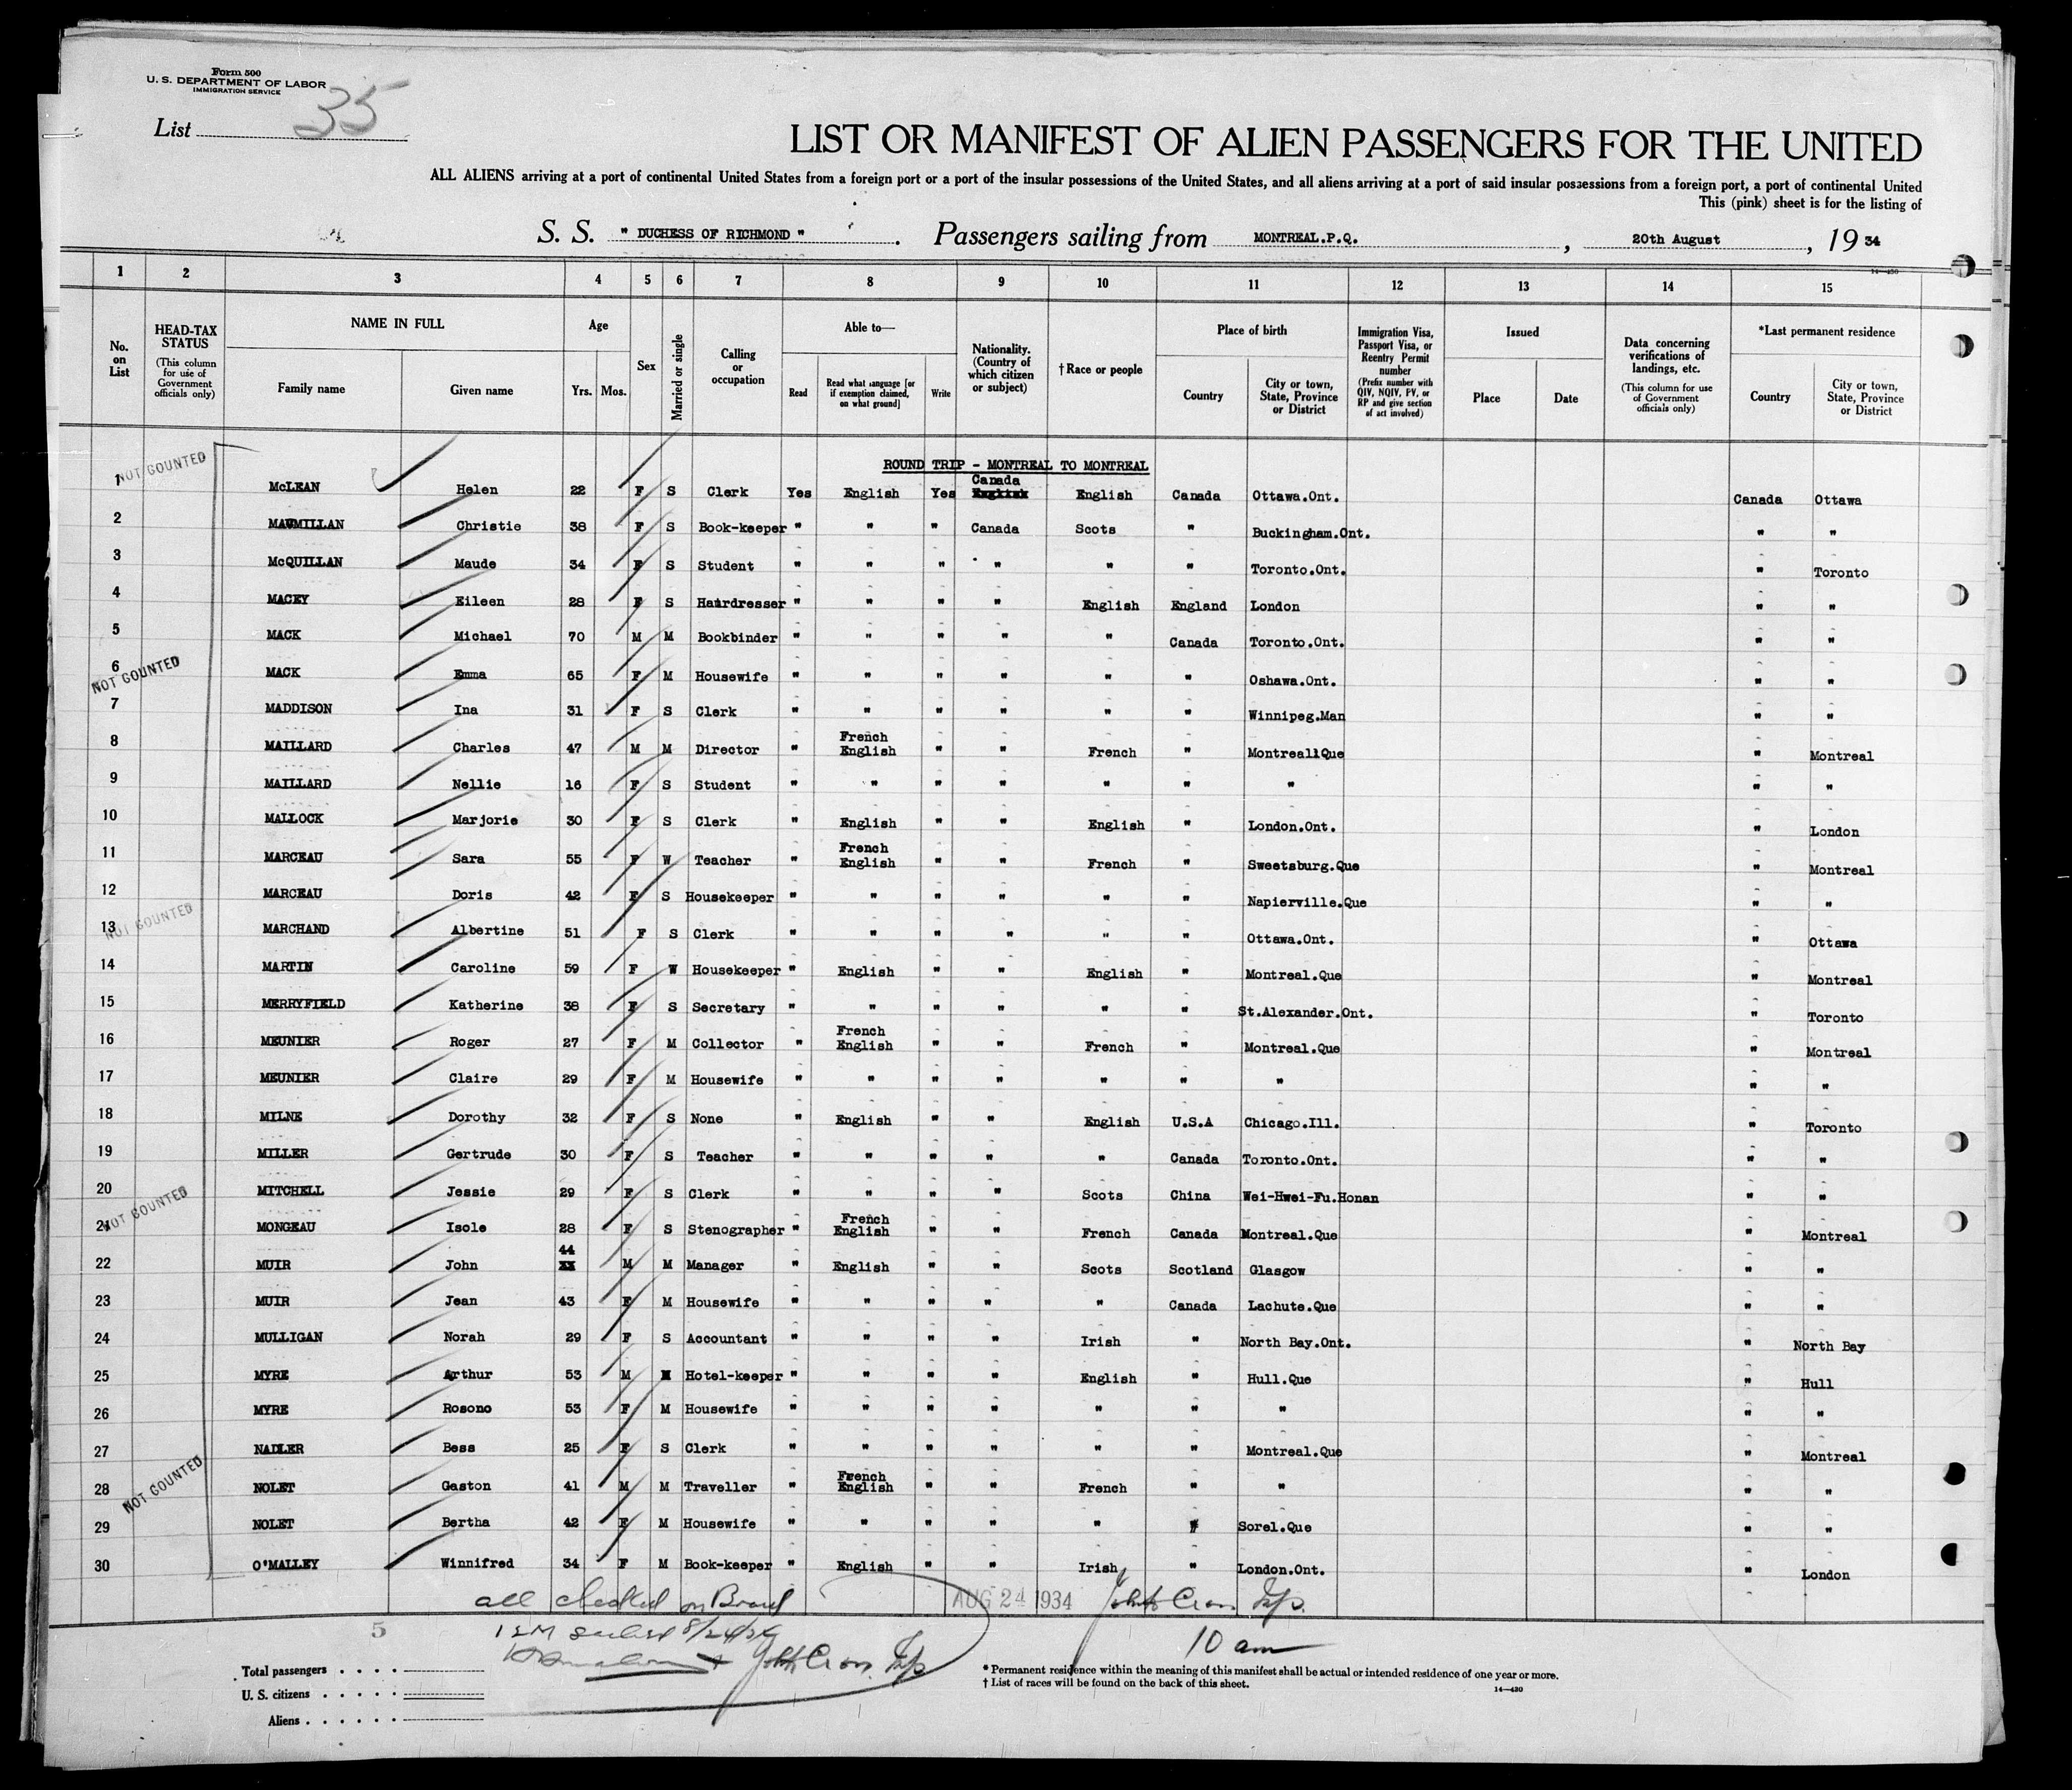 Form 500
U. S. DEPARTMENT OF LABOR
IMMIGRATION SERVICE
List 35
LIST OR MANIFEST OF ALIEN PASSENGERS FOR THE UNITED
ALL ALIENS arriving at a port of continental United States from a foreign port or a port of the insular possessions of the United States, and all aliens arriving at a port of said insular possessions from a foreign port, a port of continental United
This (pink) sheet is for the listing of
S. S. " DUCHESS OF RICHMOND " . Passengers sailing from MONTREAL.P.Q. , 20th August , 19 34
14—430
1 2 3 4 5 6 7 8 9 10 11 12 13 14 15
No. on List
HEAD-TAX STATUS
(This column for use of Government officials only)
NAME IN FULL
Family name Given name
Age
Yrs. Mos.
Sex
Married or single
Calling or occupation
Able to—
Read
Read what language [or if exemption claimed, on what ground]
Write
Nationality. (Country of which citizen or subject)
†Race or people
Place of birth
Country
City or town, State, Province or District
Immigration Visa, Passport Visa, or Reentry Permit number
(Prefix number with QIV, NQIV, PV, or RP and give section of act involved)
Issued
Place Date
Data concerning verifications of landings, etc.
(This column for use of Government officials only)
*Last permanent residence
Country
City or town, State, Province or District
NOT COUNTED
ROUND TRIP - MONTREAL TO MONTREAL
Canada
1 McLEAN Helen 22 F S Clerk Yes English Yes English English Canada Ottawa.Ont. Canada Ottawa
2 MACMILLAN Christie 38 F S Book-keeper " " " Canada Scots " Buckingham.Ont. " "
3 McQUILLAN Maude 34 F S Student " " " " " " Toronto.Ont. " Toronto
4 MACEY Eileen 28 F S Hairdresser " " " " English England London " "
5 MACK Michael 70 M M Bookbinder " " " " " Canada Toronto.Ont. " "
NOT COUNTED
6 MACK Emma 65 F M Housewife " " " " " " Oshawa.Ont. " "
7 MADDISON Ina 31 F S Clerk " " " " " " Winnipeg.Man " "
French
8 MAILLARD Charles 47 M M Director " English " " French " Montreal.Que " Montreal
9 MAILLARD Nellie 16 F S Student " " " " " " " " "
10 MALLOCK Marjorie 30 F S Clerk " English " " English " London.Ont. " London
French
11 MARCEAU Sara 55 F W Teacher " English " " French " Sweetsburg.Que " Montreal
12 MARCEAU Doris 42 F S Housekeeper " " " " " " Napierville.Que " "
NOT COUNTED
13 MARCHAND Albertine 51 F S Clerk " " " " " " Ottawa.Ont. " Ottawa
14 MARTIN Caroline 59 F W Housekeeper " English " " English " Montreal.Que " Montreal
15 MERRYFIELD Katherine 38 F S Secretary " " " " " " St.Alexander.Ont. " Toronto
French
16 MEUNIER Roger 27 F M Collector " English " " French " Montreal.Que " Montreal
17 MEUNIER Claire 29 F M Housewife " " " " " " " " "
18 MILNE Dorothy 32 F S None " English " " English U.S.A Chicago.Ill. " Toronto
19 MILLER Gertrude 30 F S Teacher " " " " " Canada Toronto.Ont. " "
20 MITCHELL Jessie 29 F S Clerk " " " " Scots China Wei-Hwei-Fu.Honan " "
NOT COUNTED
French
21 MONGEAU Isole 28 F S Stenographer " English " " French Canada Montreal.Que " Montreal
44
22 MUIR John xx M M Manager " English " " Scots Scotland Glasgow " "
23 MUIR Jean 43 F M Housewife " " " " " Canada Lachute.Que " "
24 MULLIGAN Norah 29 F S Accountant " " " " Irish " North Bay.Ont. " North Bay
25 MYRE Arthur 53 M M Hotel-keeper " " " " English " Hull.Que " Hull
26 MYRE Rosono 53 F M Housewife " " " " " " " " "
27 NADLER Bess 25 F S Clerk " " " " " " Montreal.Que " Montreal
NOT COUNTED
French
28 NOLET Gaston 41 M M Traveller " English " " French " " " "
29 NOLET Bertha 42 F M Housewife " " " " " " Sorel.Que " "
30 O'MALLEY Winnifred 34 F M Book-keeper " English " " Irish " London.Ont. " London
all checked on Board AUG 24 1934 John Cron Insp.
5
8/24/34
10 am
John Cron Insp
Total passengers . . . .
U. S. citizens . . . . .
Aliens . . . . . .
* Permanent residence within the meaning of this manifest shall be actual or intended residence of one year or more.
† List of races will be found on the back of this sheet.
14—430